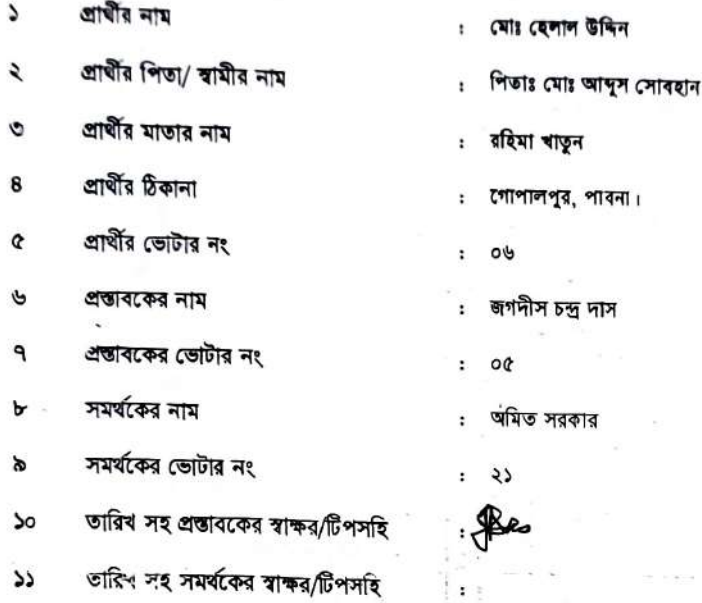 ১ প্রার্থীর নাম : মোঃ হেলাল উদ্দিন
২ প্রার্থীর পিতা/ স্বামীর নাম : পিতাঃ মোঃ আব্দুস সোবহান
৩ প্রার্থীর মাতার নাম : রহিমা খাতুন
৪ প্রার্থীর ঠিকানা : গোপালপুর, পাবনা।
৫ প্রার্থীর ভোটার নং : ০৬
৬ প্রস্তাবকের নাম : জগদীস চন্দ্র দাস
৭ প্রস্তাবকের ভোটার নং : ০৫
৮ সমর্থকের নাম : অমিত সরকার
৯ সমর্থকের ভোটার নং : ২১
১০ তারিখ সহ প্রস্তাবকের স্বাক্ষর/টিপসহি :
১১ তারিখ সহ সমর্থকের স্বাক্ষর/টিপসহি :